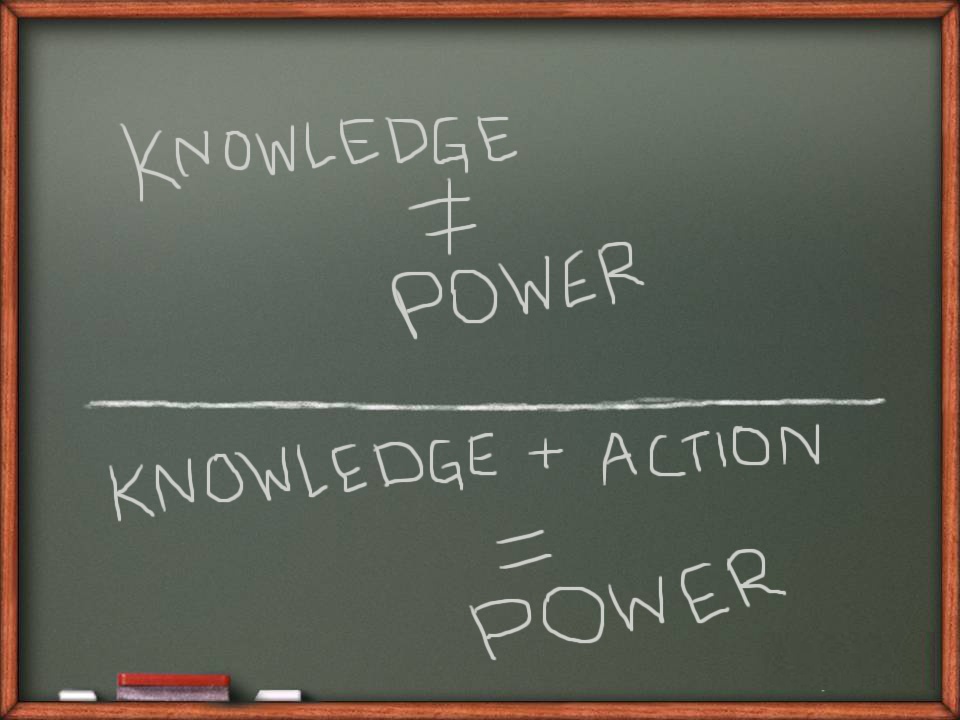 KNOWLEDGE
≠
POWER
KNOWLEDGE + ACTION
=
POWER